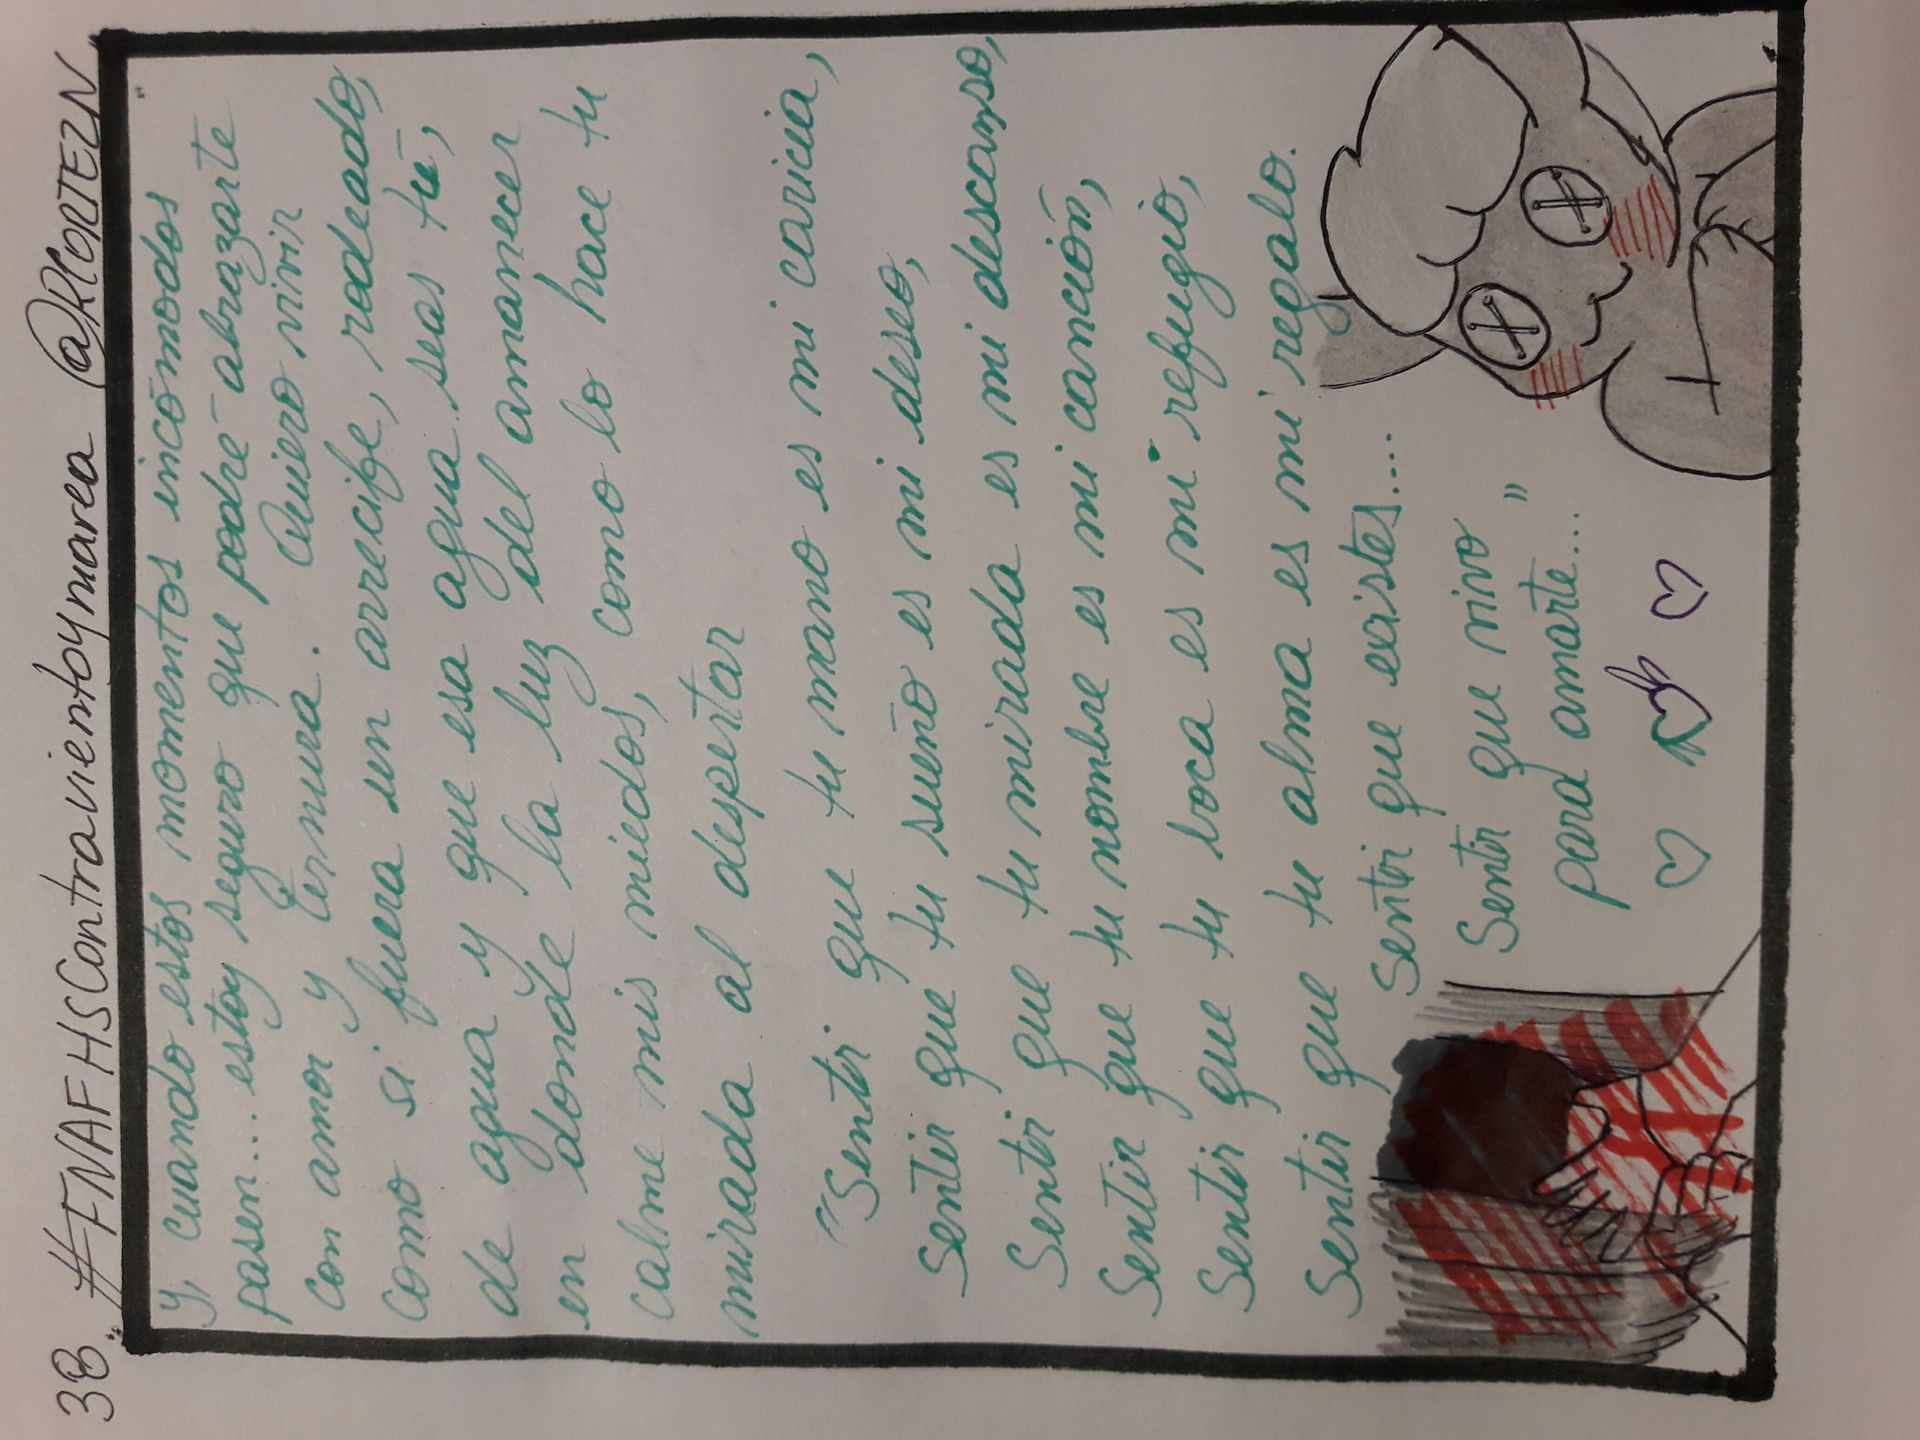 38 #FNAFHSContravientoymarea @RCORTEZN
Y, cuando estos momentos incómodos
pasen... estoy seguro que podré abrazarte
con amor y ternura. Quiero vivir
como si fuera un arrecife, rodeado,
de agua y que esa agua seas tú,
en donde la luz del amanecer
calme mis miedos, como lo hace tu
mirada al despertar
"Sentir que tu mano es mi caricia,
Sentir que tu sueño es mi deseo,
Sentir que tu mirada es mi descanso,
Sentir que tu nombre es mi canción,
Sentir que tu boca es mi refugio,
Sentir que tu alma es mi regalo.
Sentir que existes....
Sentir que vivo
para amarte..."